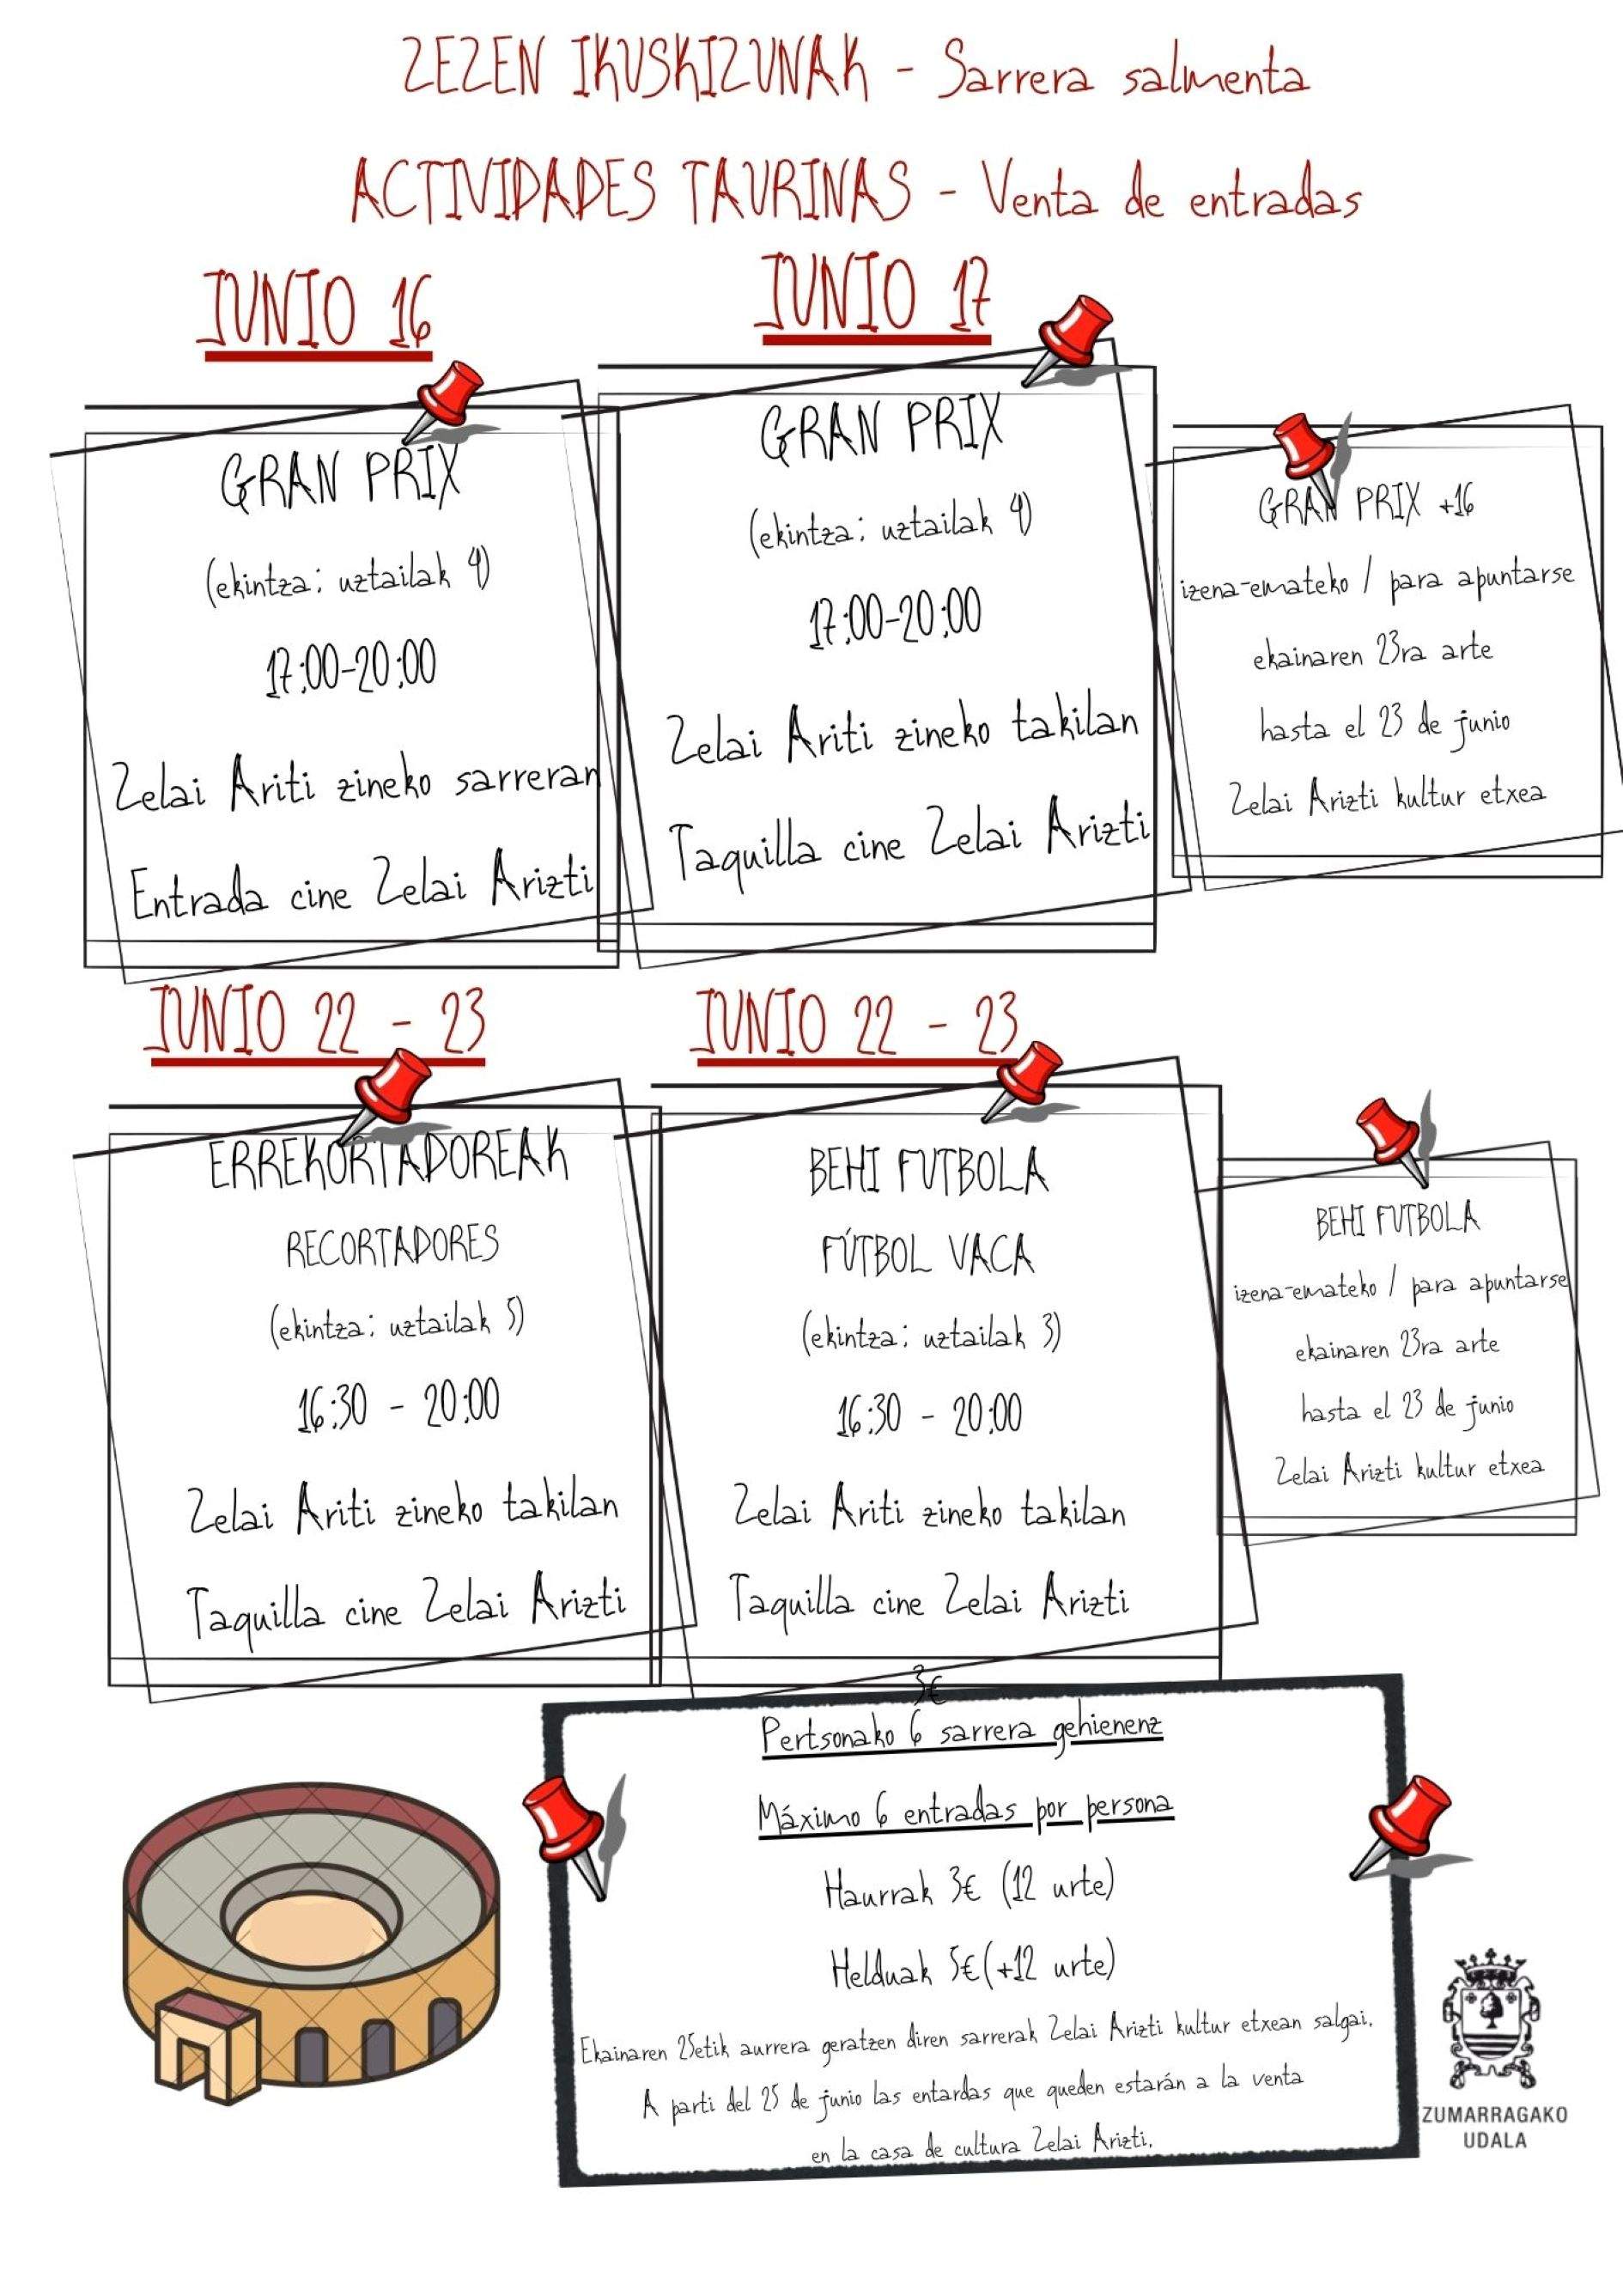 ZEZEN IKUSKIZUNAK - Sarrera salmenta
ACTIVIDADES TAURINAS - Venta de entradas
JUNIO 16
GRAN PRIX
(ekintza: uztailak 4)
17:00-20:00
Zelai Ariti zineko sarreran
Entrada cine Zelai Arizti
JUNIO 17
GRAN PRIX
(ekintza: uztailak 4)
17:00-20:00
Zelai Ariti zineko takilan
Taquilla cine Zelai Arizti
GRAN PRIX +16
izena-emateko / para apuntarse
ekainaren 23ra arte
hasta el 23 de junio
Zelai Arizti kultur etxea
JUNIO 22 - 23
ERREKORTADOREAK
RECORTADORES
(ekintza: uztailak 5)
16:30 - 20:00
Zelai Ariti zineko takilan
Taquilla cine Zelai Arizti
JUNIO 22 - 23
BEHI FUTBOLA
FÚTBOL VACA
(ekintza: uztailak 3)
16:30 - 20:00
Zelai Ariti zineko takilan
Taquilla cine Zelai Arizti
BEHI FUTBOLA
izena-emateko / para apuntarse
ekainaren 23ra arte
hasta el 23 de junio
Zelai Arizti kultur etxea
3€
Pertsonako 6 sarrera gehienenz
Máximo 6 entradas por persona
Haurrak 3€ (12 urte)
Helduak 5€(+12 urte)
Ekainaren 25etik aurrera geratzen diren sarrerak Zelai Arizti kultur etxean salgai.
A parti del 25 de junio las entardas que queden estarán a la venta
en la casa de cultura Zelai Arizti.
ZUMARRAGAKO
UDALA